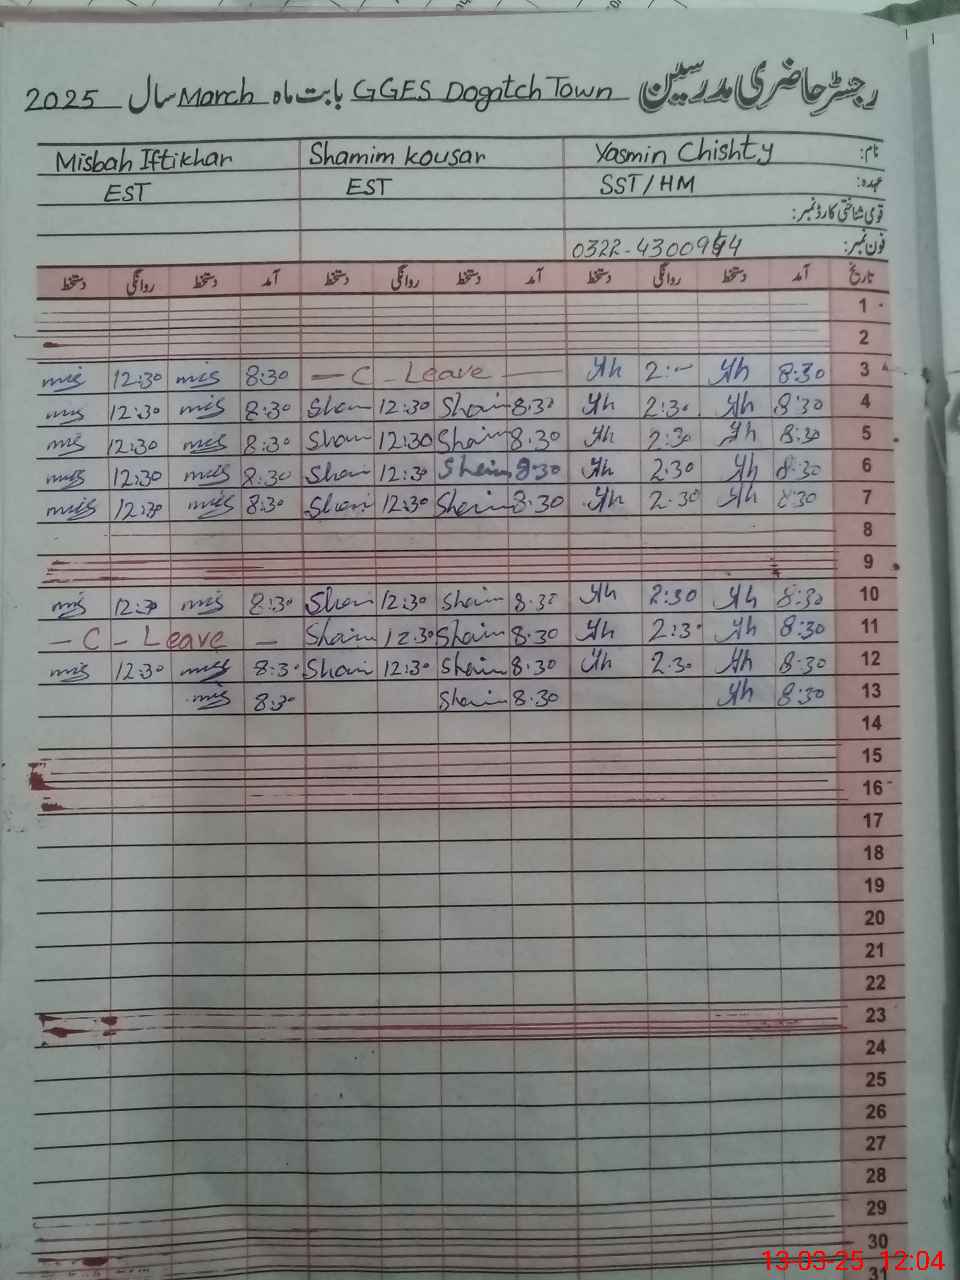 رجسٹر حاضری مدرسین GGES Dogatch Town بابت ماہ March سال 2025
نام: Yasmin Chishty Shamim Kousar Misbah Iftikhar
عہدہ: SST/HM EST EST
قومی شناختی کارڈ نمبر:
فون نمبر:
تاریخ آمد دستخط روانگی دستخط آمد دستخط روانگی دستخط آمد دستخط روانگی دستخط
1
2
3 8:30 Yh 2:— Yh — C - Leave — 8:30 mis 12:30 mis
4 8:30 Yh 2:30 Yh 8:30 Sham 12:30 Sham 8:30 mis 12:30 mis
5 8:30 Yh 2:30 Yh 8:30 Sham 12:30 Sham 8:30 mis 12:30 mis
6 8:30 Yh 2:30 Yh 8:30 Sham 12:30 Sham 8:30 mis 12:30 mis
7 8:30 Yh 2:30 Yh 8:30 Sham 12:30 Sham 8:30 mis 12:30 mis
8
9
10 8:30 Yh 2:30 Yh 8:30 Sham 12:30 Sham 8:30 mis 12:30 mis
11 8:30 Yh 2:30 Yh 8:30 Sham 12:30 Sham — C - Leave —
12 8:30 Yh 2:30 Yh 8:30 Sham 12:30 Sham 8:30 mis 12:30 mis
13 8:30 Yh 8:30 Sham 8:30 mis
14
15
16
17
18
19
20
21
22
23
24
25
26
27
28
29
30
31
13-03-25 12:04